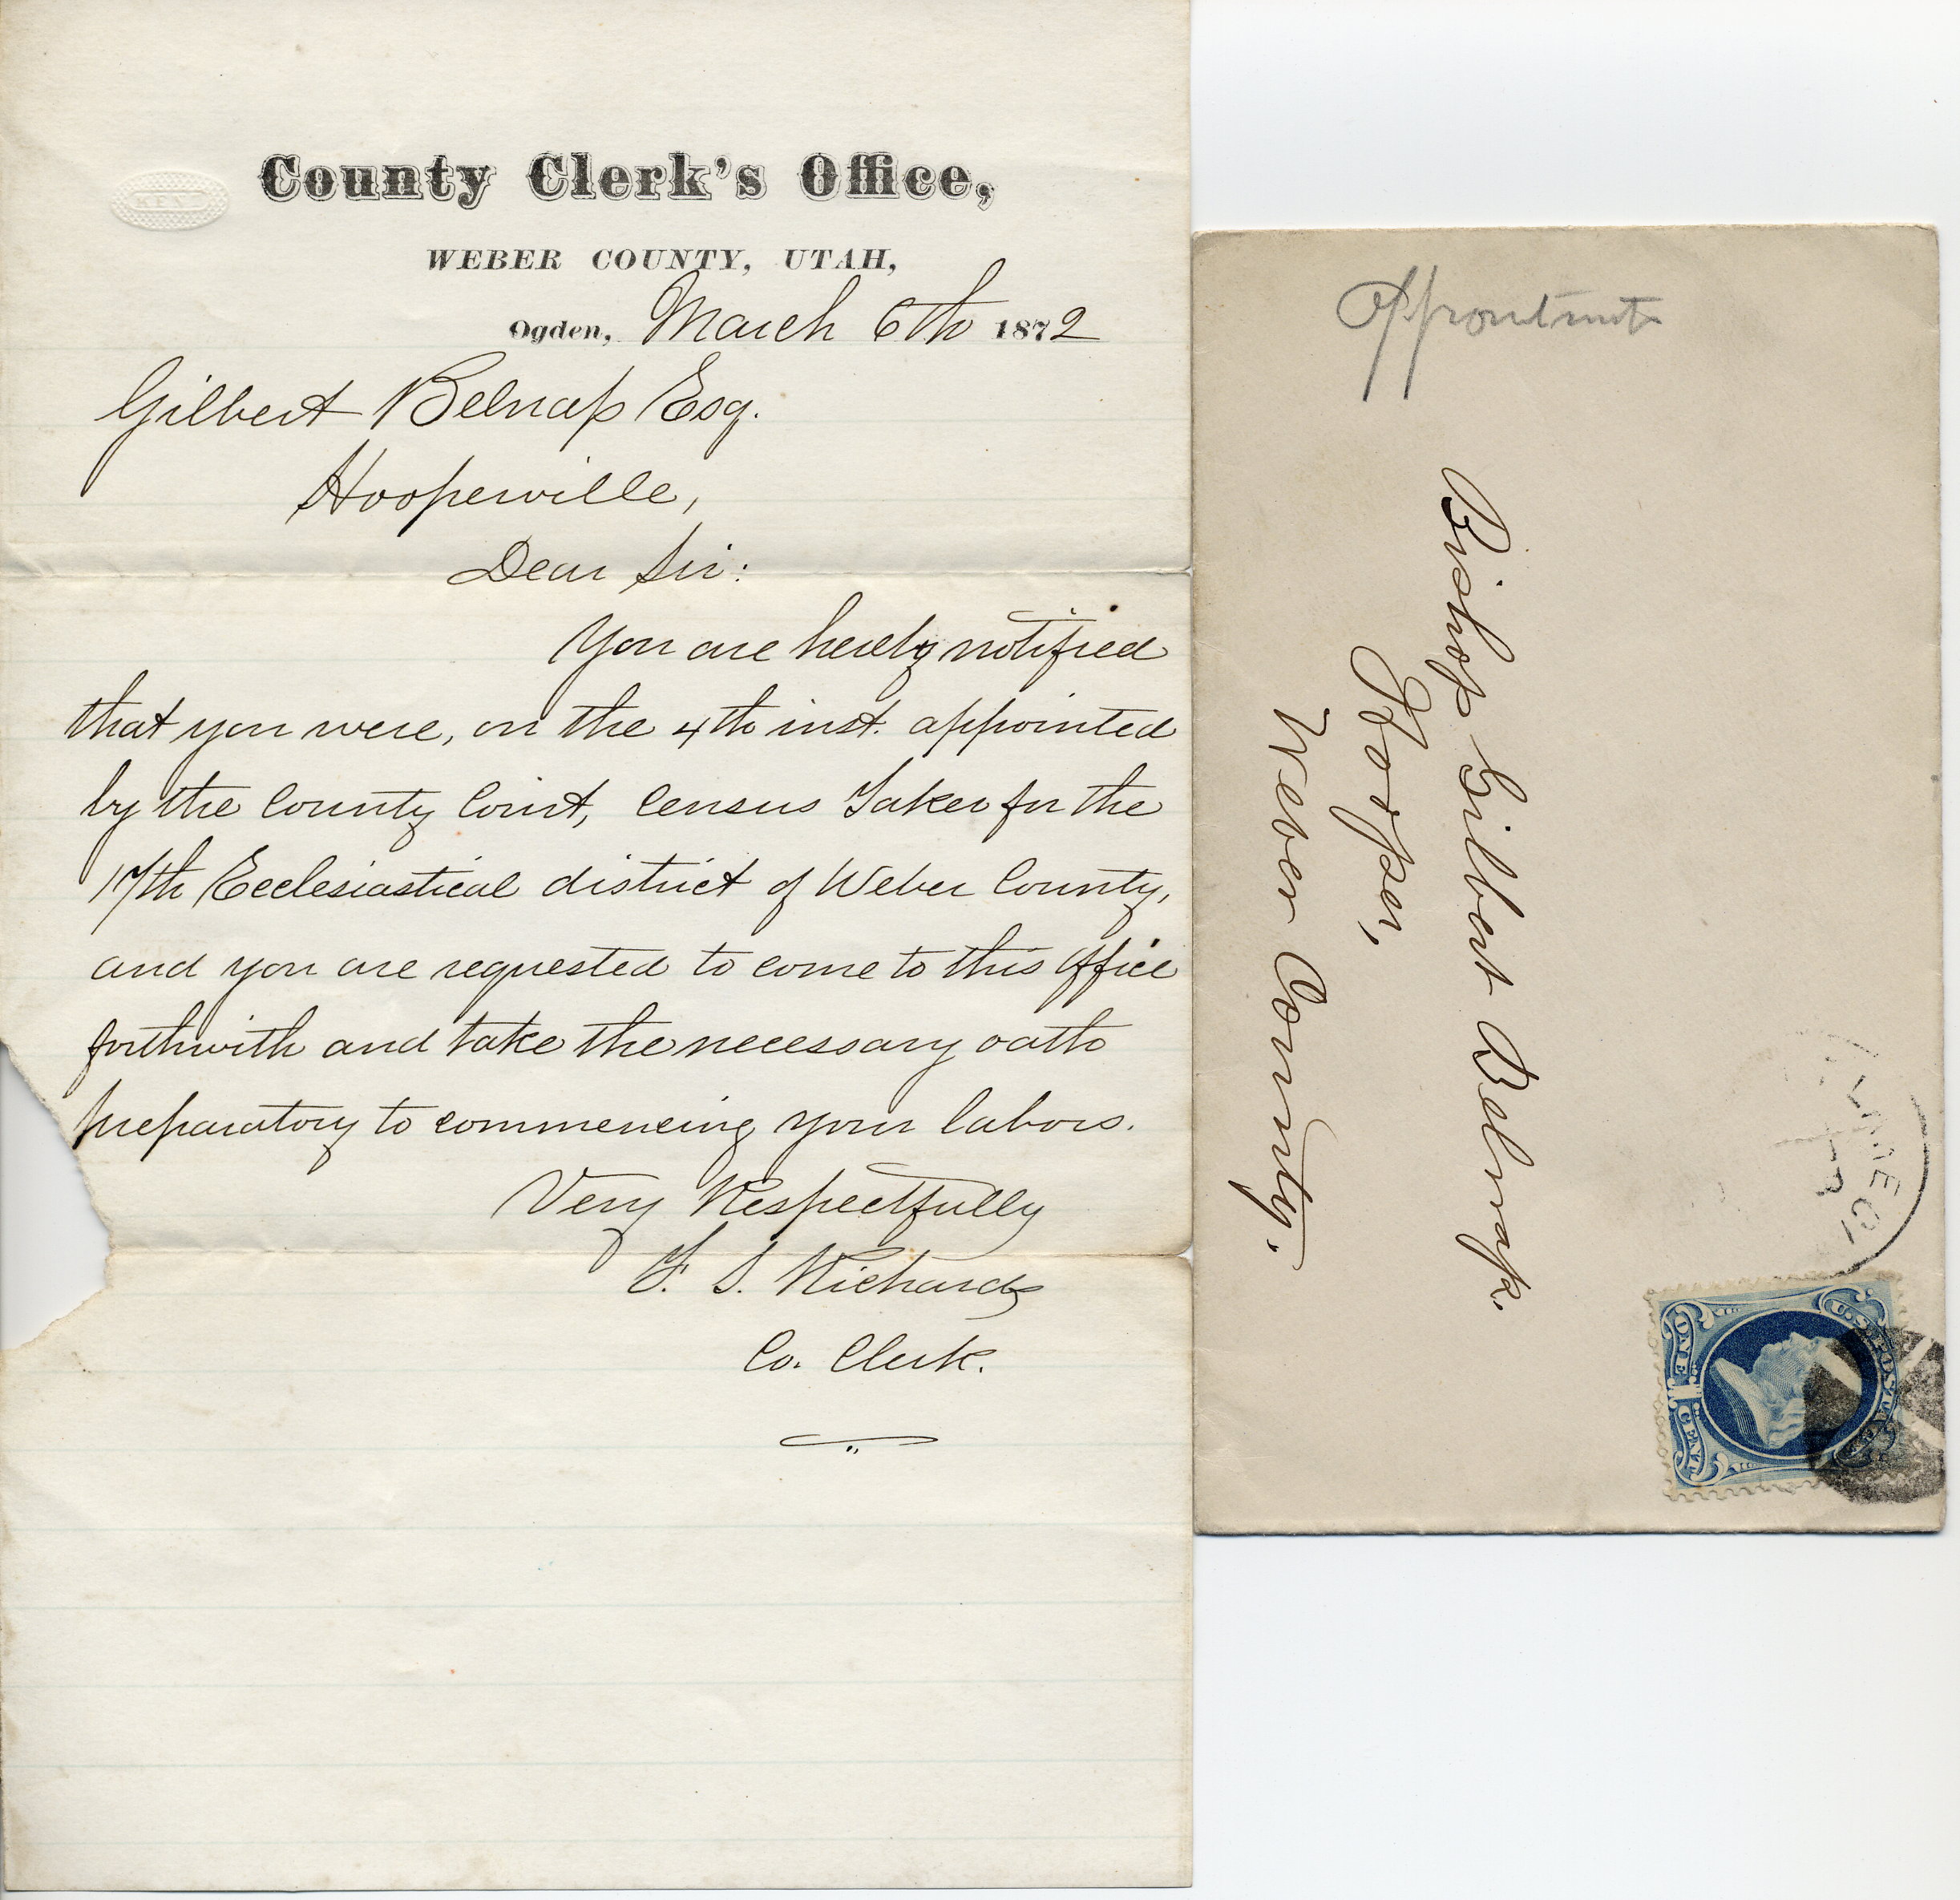 KENT
County Clerk's Office,
WEBER COUNTY, UTAH,
Ogden, March 6th 1872
Gilbert Belnap Esq.
Hooperville,
Dear Sir:
You are hereby notified
that you were, on the 4th inst. appointed
by the County Court, Census Taker for the
17th Ecclesiastical district of Weber County,
and you are requested to come to this Office
forthwith and take the necessary oath
preparatory to commencing your labors.
Very Respectfully
F. S. Richards
Co. Clerk.
Bishop Gilbert Belnap.
Hooper,
Weber County.
U.S. POSTAGE
ONE 1 CENT